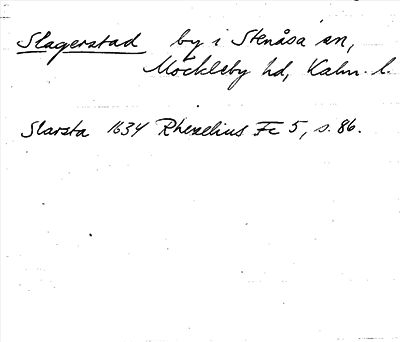 Slagerstad by i Stenåsa sn,
Möckleby hd, Kalm. l.
Slarsta 1634 Rhezelius Fc 5, s. 86.